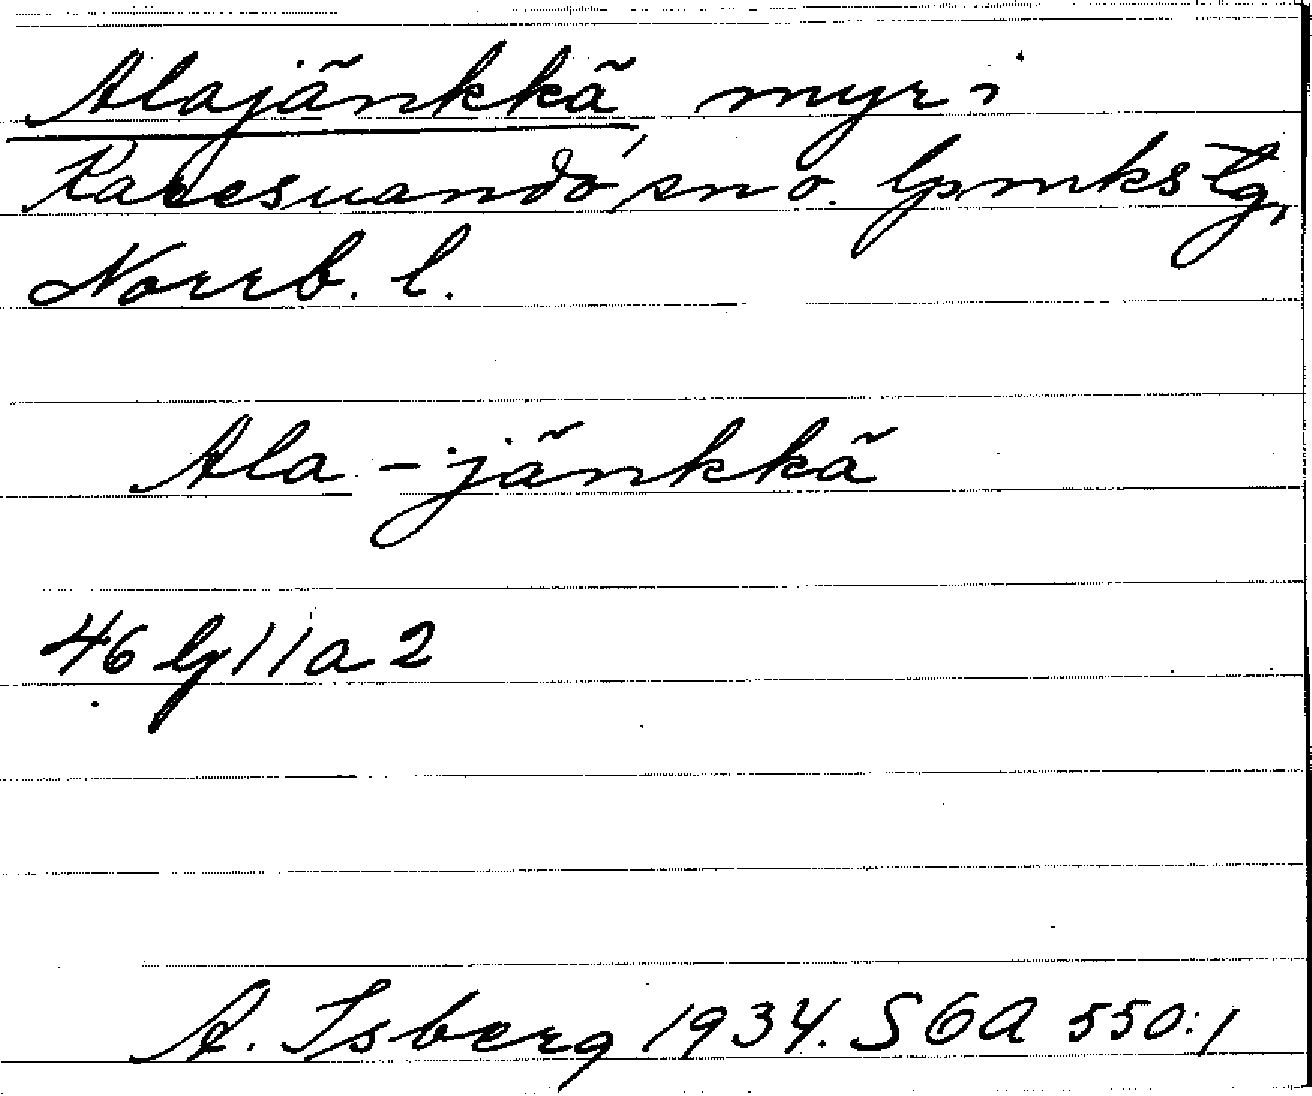 Alajänkkä, myr i
Karesuando sn o. lpmkstg,
Norrb. l.
Ala-jänkkä
46 lg 11 a 2
A. Isberg 1934. SOA 550:1